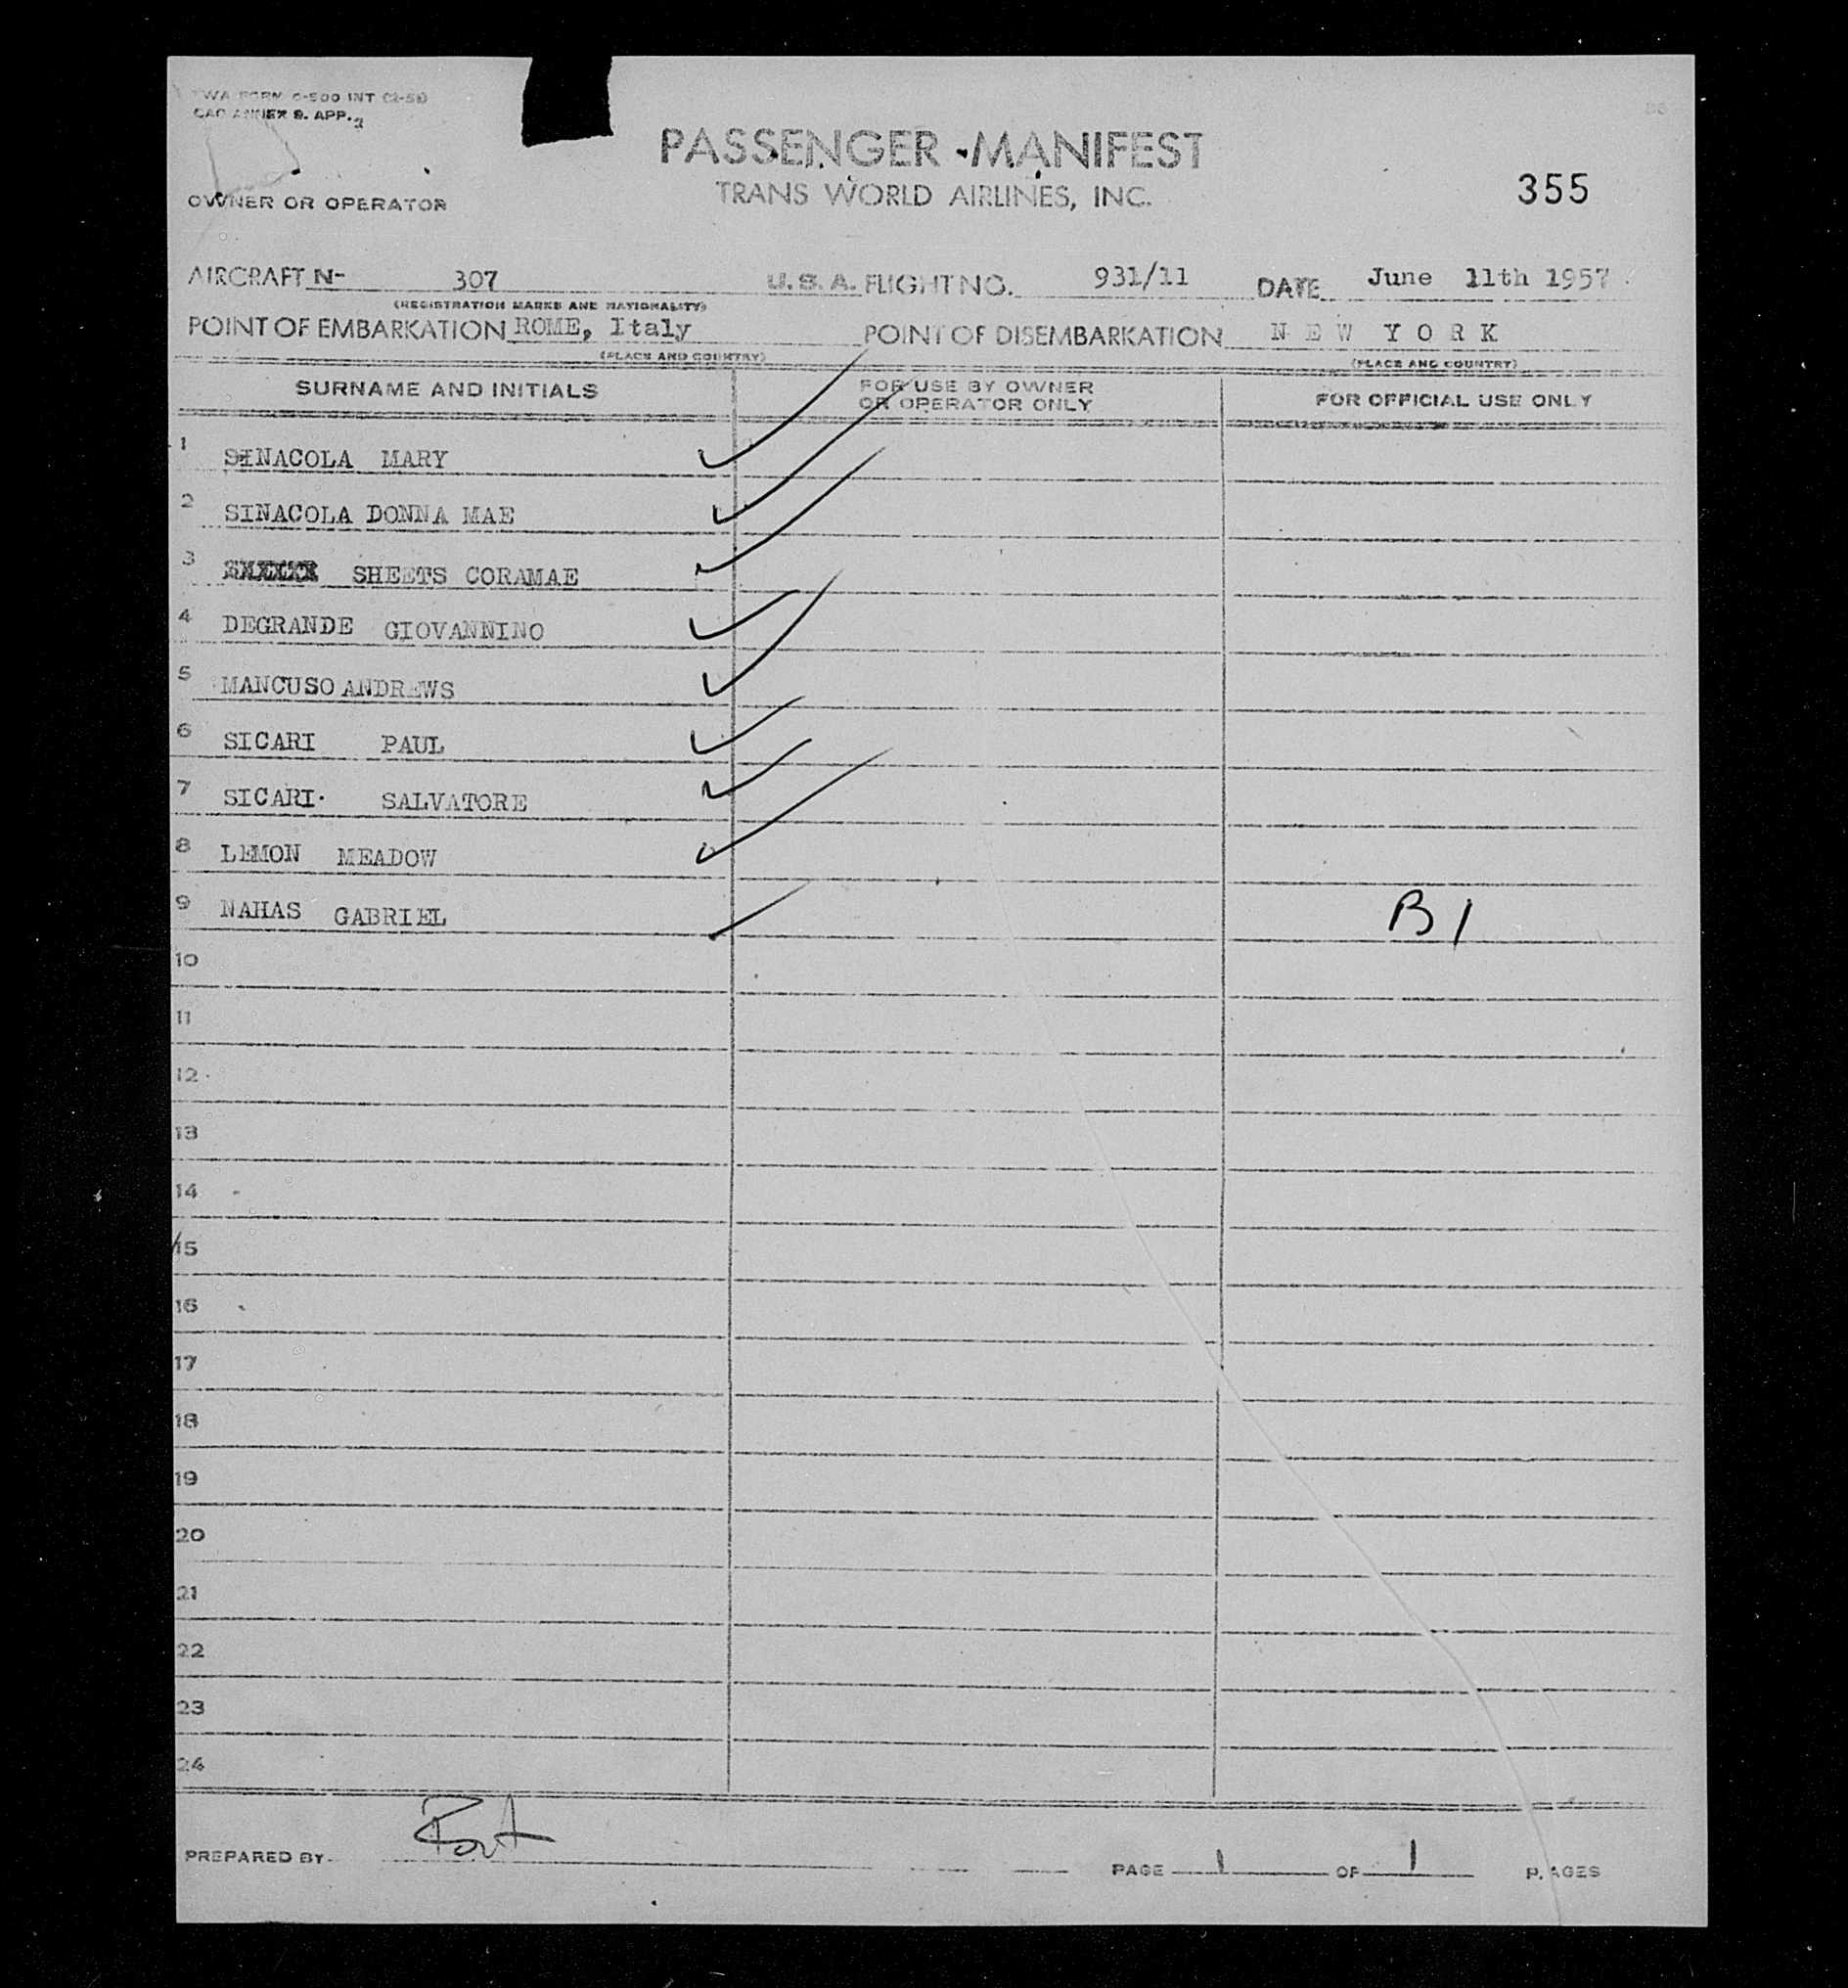 TWA FORM O-500 INT (2-51)
CAO ANNEX 9. APP. 2
PASSENGER MANIFEST
TRANS WORLD AIRLINES, INC.
355
OWNER OR OPERATOR
AIRCRAFT N- 307 U.S.A. FLIGHT NO. 931/11 DATE June 11th 1957
(REGISTRATION MARKS AND NATIONALITY)
POINT OF EMBARKATION ROME, Italy POINT OF DISEMBARKATION NEW YORK
(PLACE AND COUNTRY) (PLACE AND COUNTRY)
SURNAME AND INITIALS FOR USE BY OWNER OR OPERATOR ONLY FOR OFFICIAL USE ONLY
1 SINACOLA MARY
2 SINACOLA DONNA MAE
3 SHEETS CORAMAE
4 DEGRANDE GIOVANNINO
5 MANCUSO ANDREWS
6 SICARI PAUL
7 SICARI. SALVATORE
8 LEMON MEADOW
9 NAHAS GABRIEL B1
10
11
12
13
14
15
16
17
18
19
20
21
22
23
24
PREPARED BY PAGE 1 OF 1 PAGES